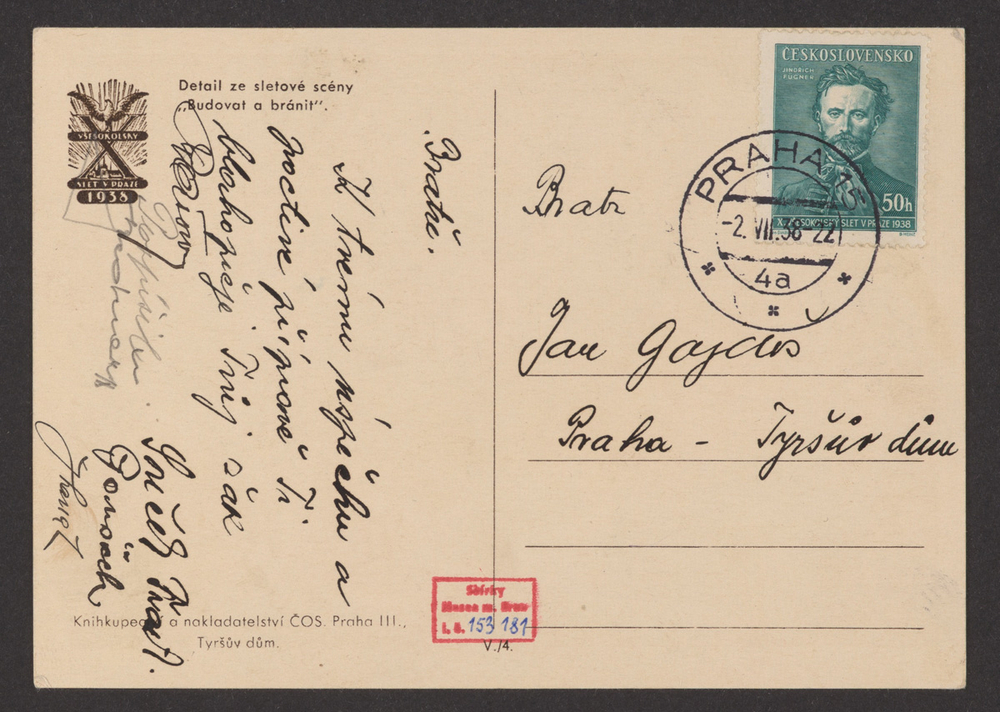 Detail ze sletové scény
„Budovat a bránit".
VŠESOKOLSKÝ
SLET V PRAZE
1938
Bratře.
K trému úspěchu a
poctivé přípravě Ti
blahopřeje Tvůj
Knihkupectví a nakladatelství ČOS. Praha III.,
Tyršův dům.
V./4.
Sbírky
Musea m. Brna
i. č. 153 181
ČESKOSLOVENSKO
JINDŘICH
FÜGNER
50h
X. VŠESOKOLSKÝ SLET V PRAZE 1938
PRAHA 15
-2. VII. 38-22
4a
Bratr
Jan Gajdoš
Praha - Tyršův dům